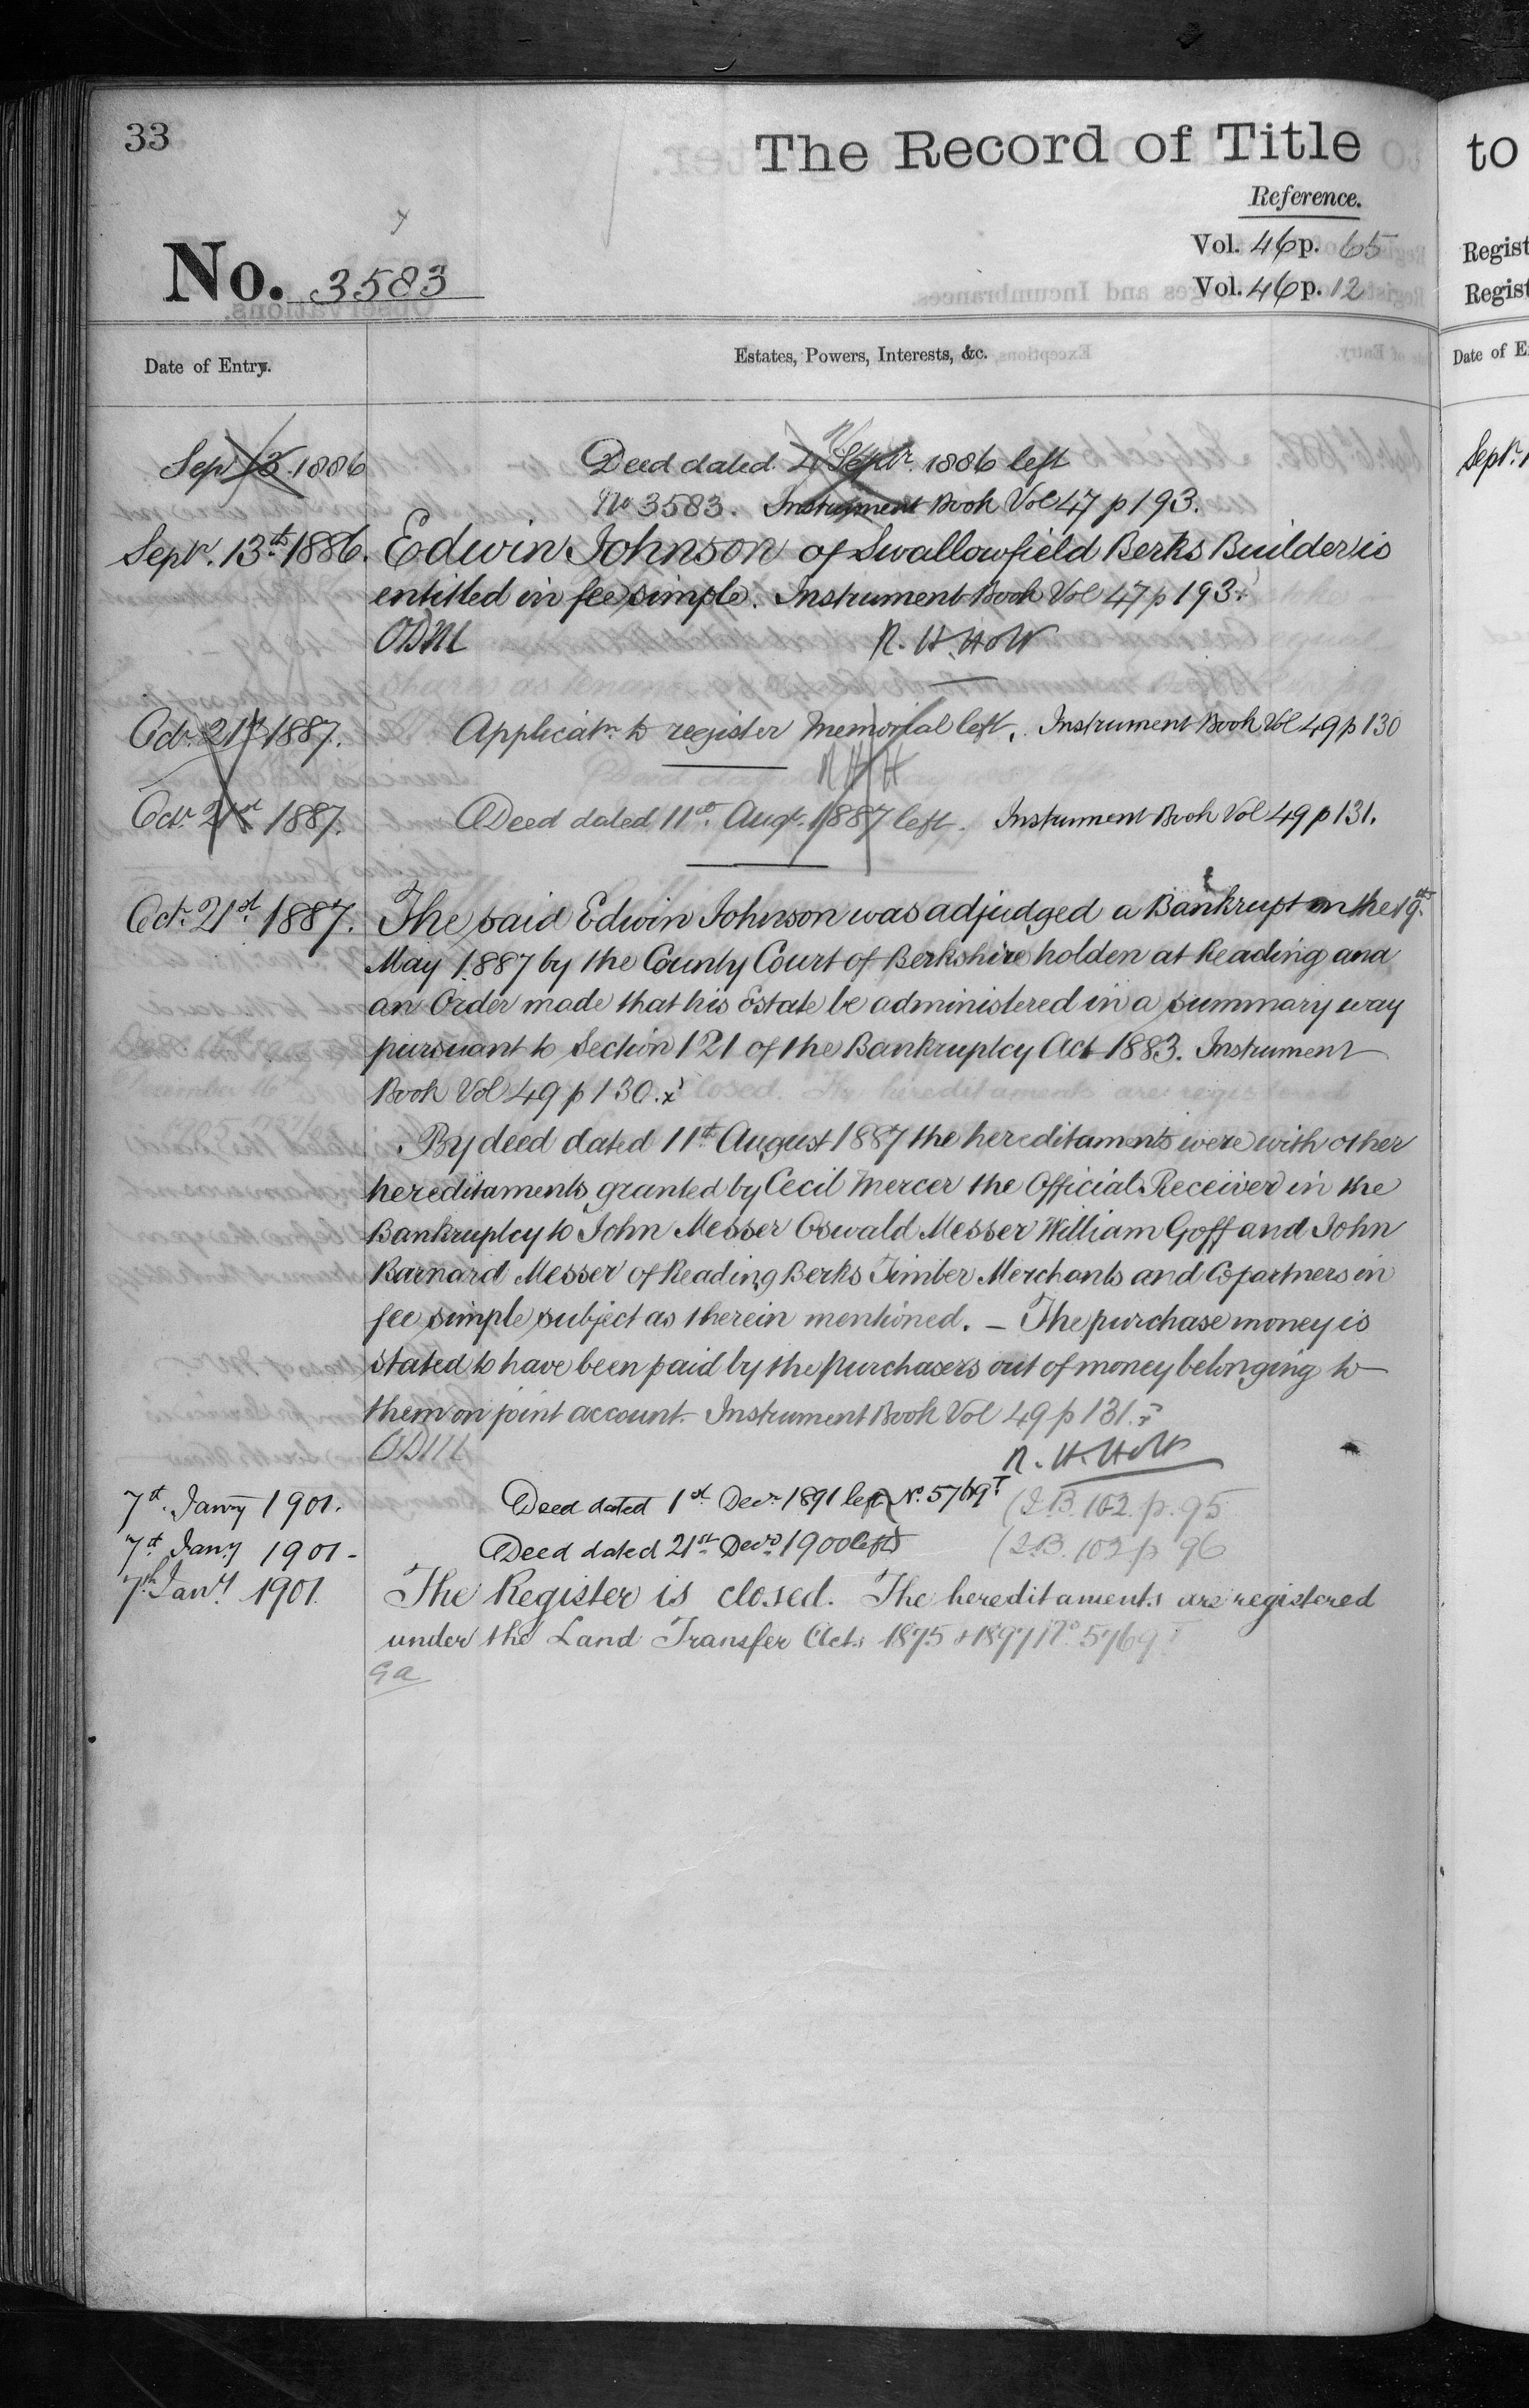 33
The Record of Title
to
Reference.
Vol. 46 p. 65
Regist
No. 3583
Vol. 46 p. 12
Regist
Date of Entry.
Estates, Powers, Interests, &c.
Date of E
Sepr 13 1886
Deed dated 4 Septr. 1886 left
Sept.
No 3583. Instrument Book Vol 47 p 193.
Septr. 13th 1886.
Edwin Johnson of Swallowfield Berks Builder is
entitled in fee simple. Instrument Book Vol 47 p 193.
R. H. Holt
Octr. 21st 1887.
Applicatn. to register Memorial left. Instrument Book Vol 49 p 130
R H H
Octr. 21st 1887.
Deed dated 11th Augt. 1887 left. Instrument Book Vol 49 p 131.
Octr. 21st 1887.
The said Edwin Johnson was adjudged a Bankrupt on the 19th
May 1887 by the County Court of Berkshire holden at Reading and
an Order made that his Estate be administered in a summary way
pursuant to Section 121 of the Bankruptcy Act 1883. Instrument
Book Vol 49 p 130.
By deed dated 11th August 1887 the hereditaments were with other
hereditaments granted by Cecil Mercer the Official Receiver in the
Bankruptcy to John Messer Oswald Messer William Goff and John
Barnard Messer of Reading Berks Timber Merchants and Copartners in
fee simple subject as therein mentioned. – The purchase money is
stated to have been paid by the purchasers out of money belonging to
them on joint account. Instrument Book Vol 49 p 131.
R. H. Holt
7th. Jany 1901.
Deed dated 1st Decr. 1891 left No. 5769T (I.B. 102. p. 95
7th Jany 1901 -
Deed dated 21st Decr 1900 left (I.B. 102 p 96
7th Jany 1901.
The Register is closed. The hereditaments are registered
under the Land Transfer Acts 1875 & 1897 No. 5769T
Ga